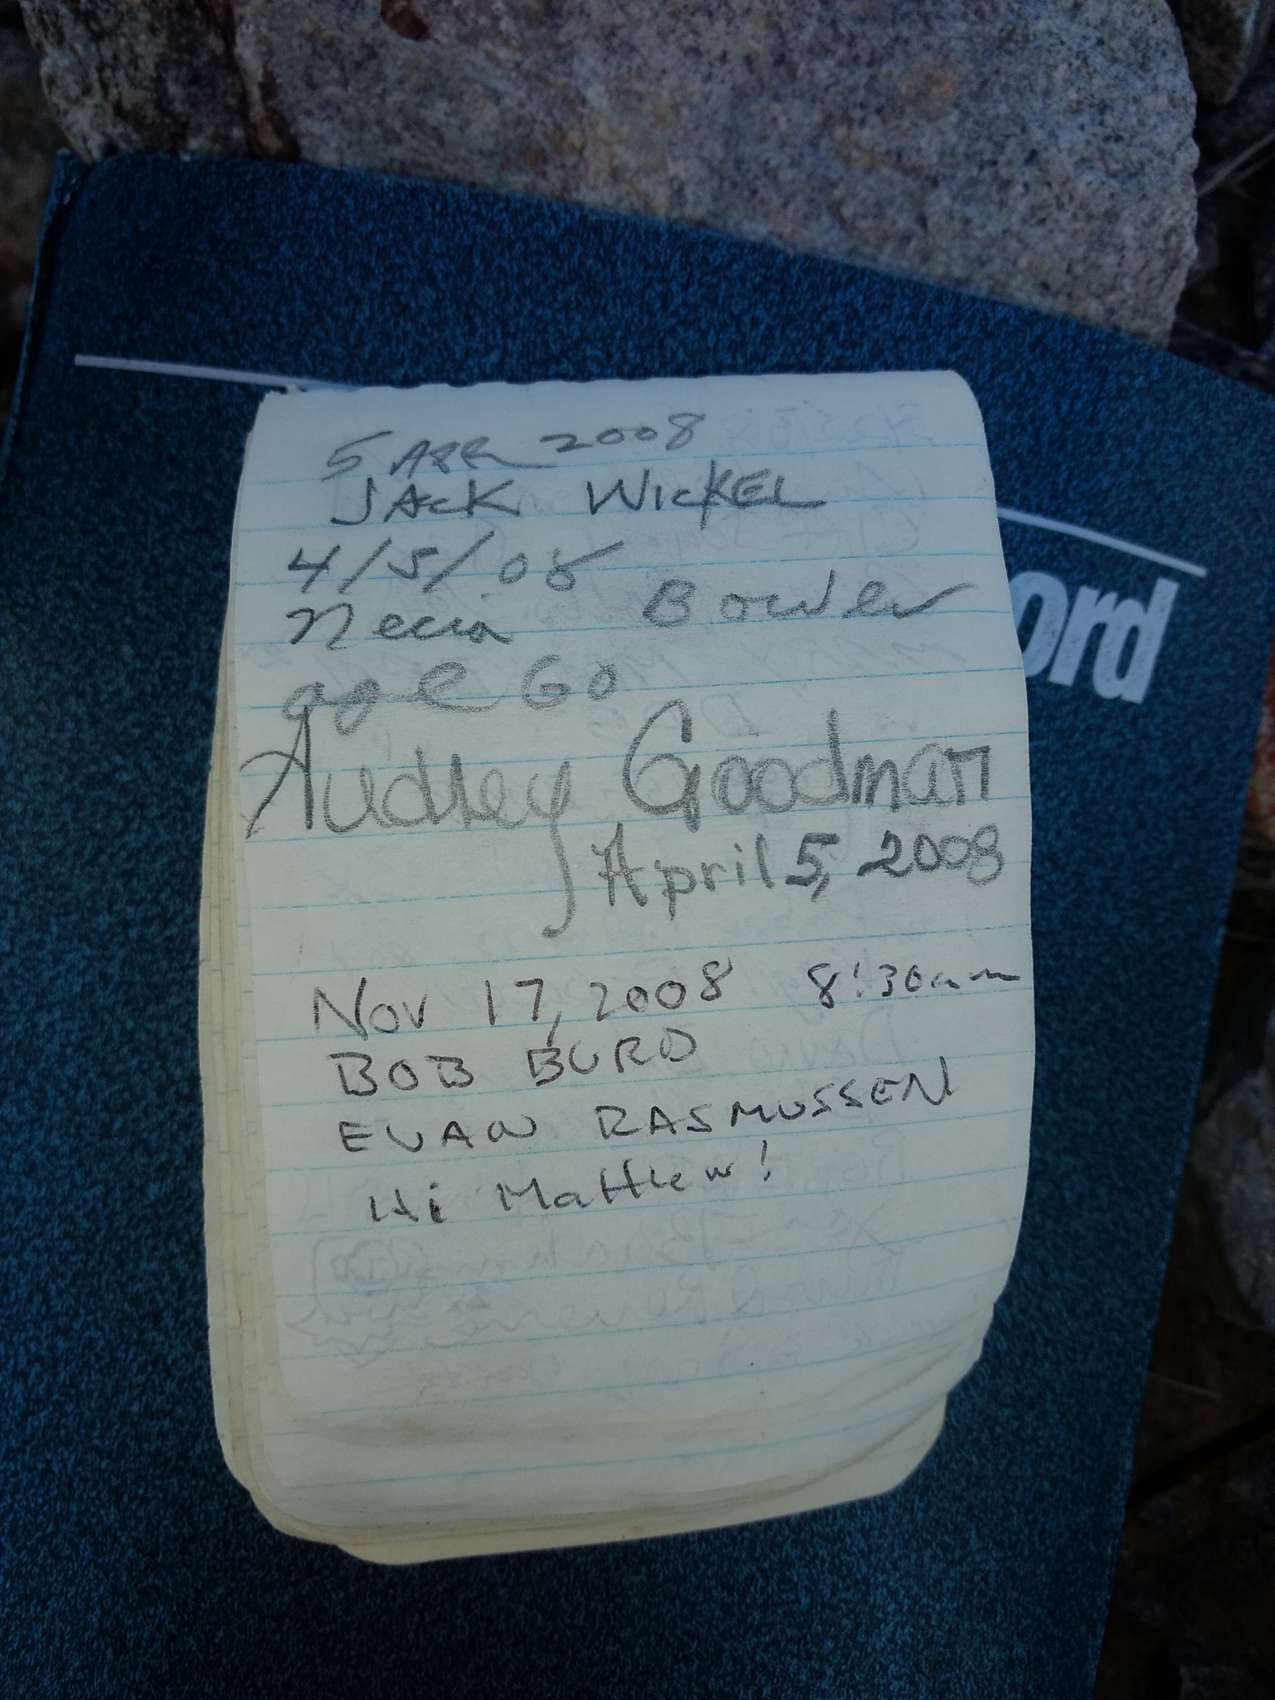 5 APR 2008
JACK WICKEL
4/5/08
Necia Bowder
age 60
Audrey Goodman
April 5, 2008
Nov 17, 2008 8:30am
BOB BURD
EVAN RASMUSSEN
Hi Matthew!
ord